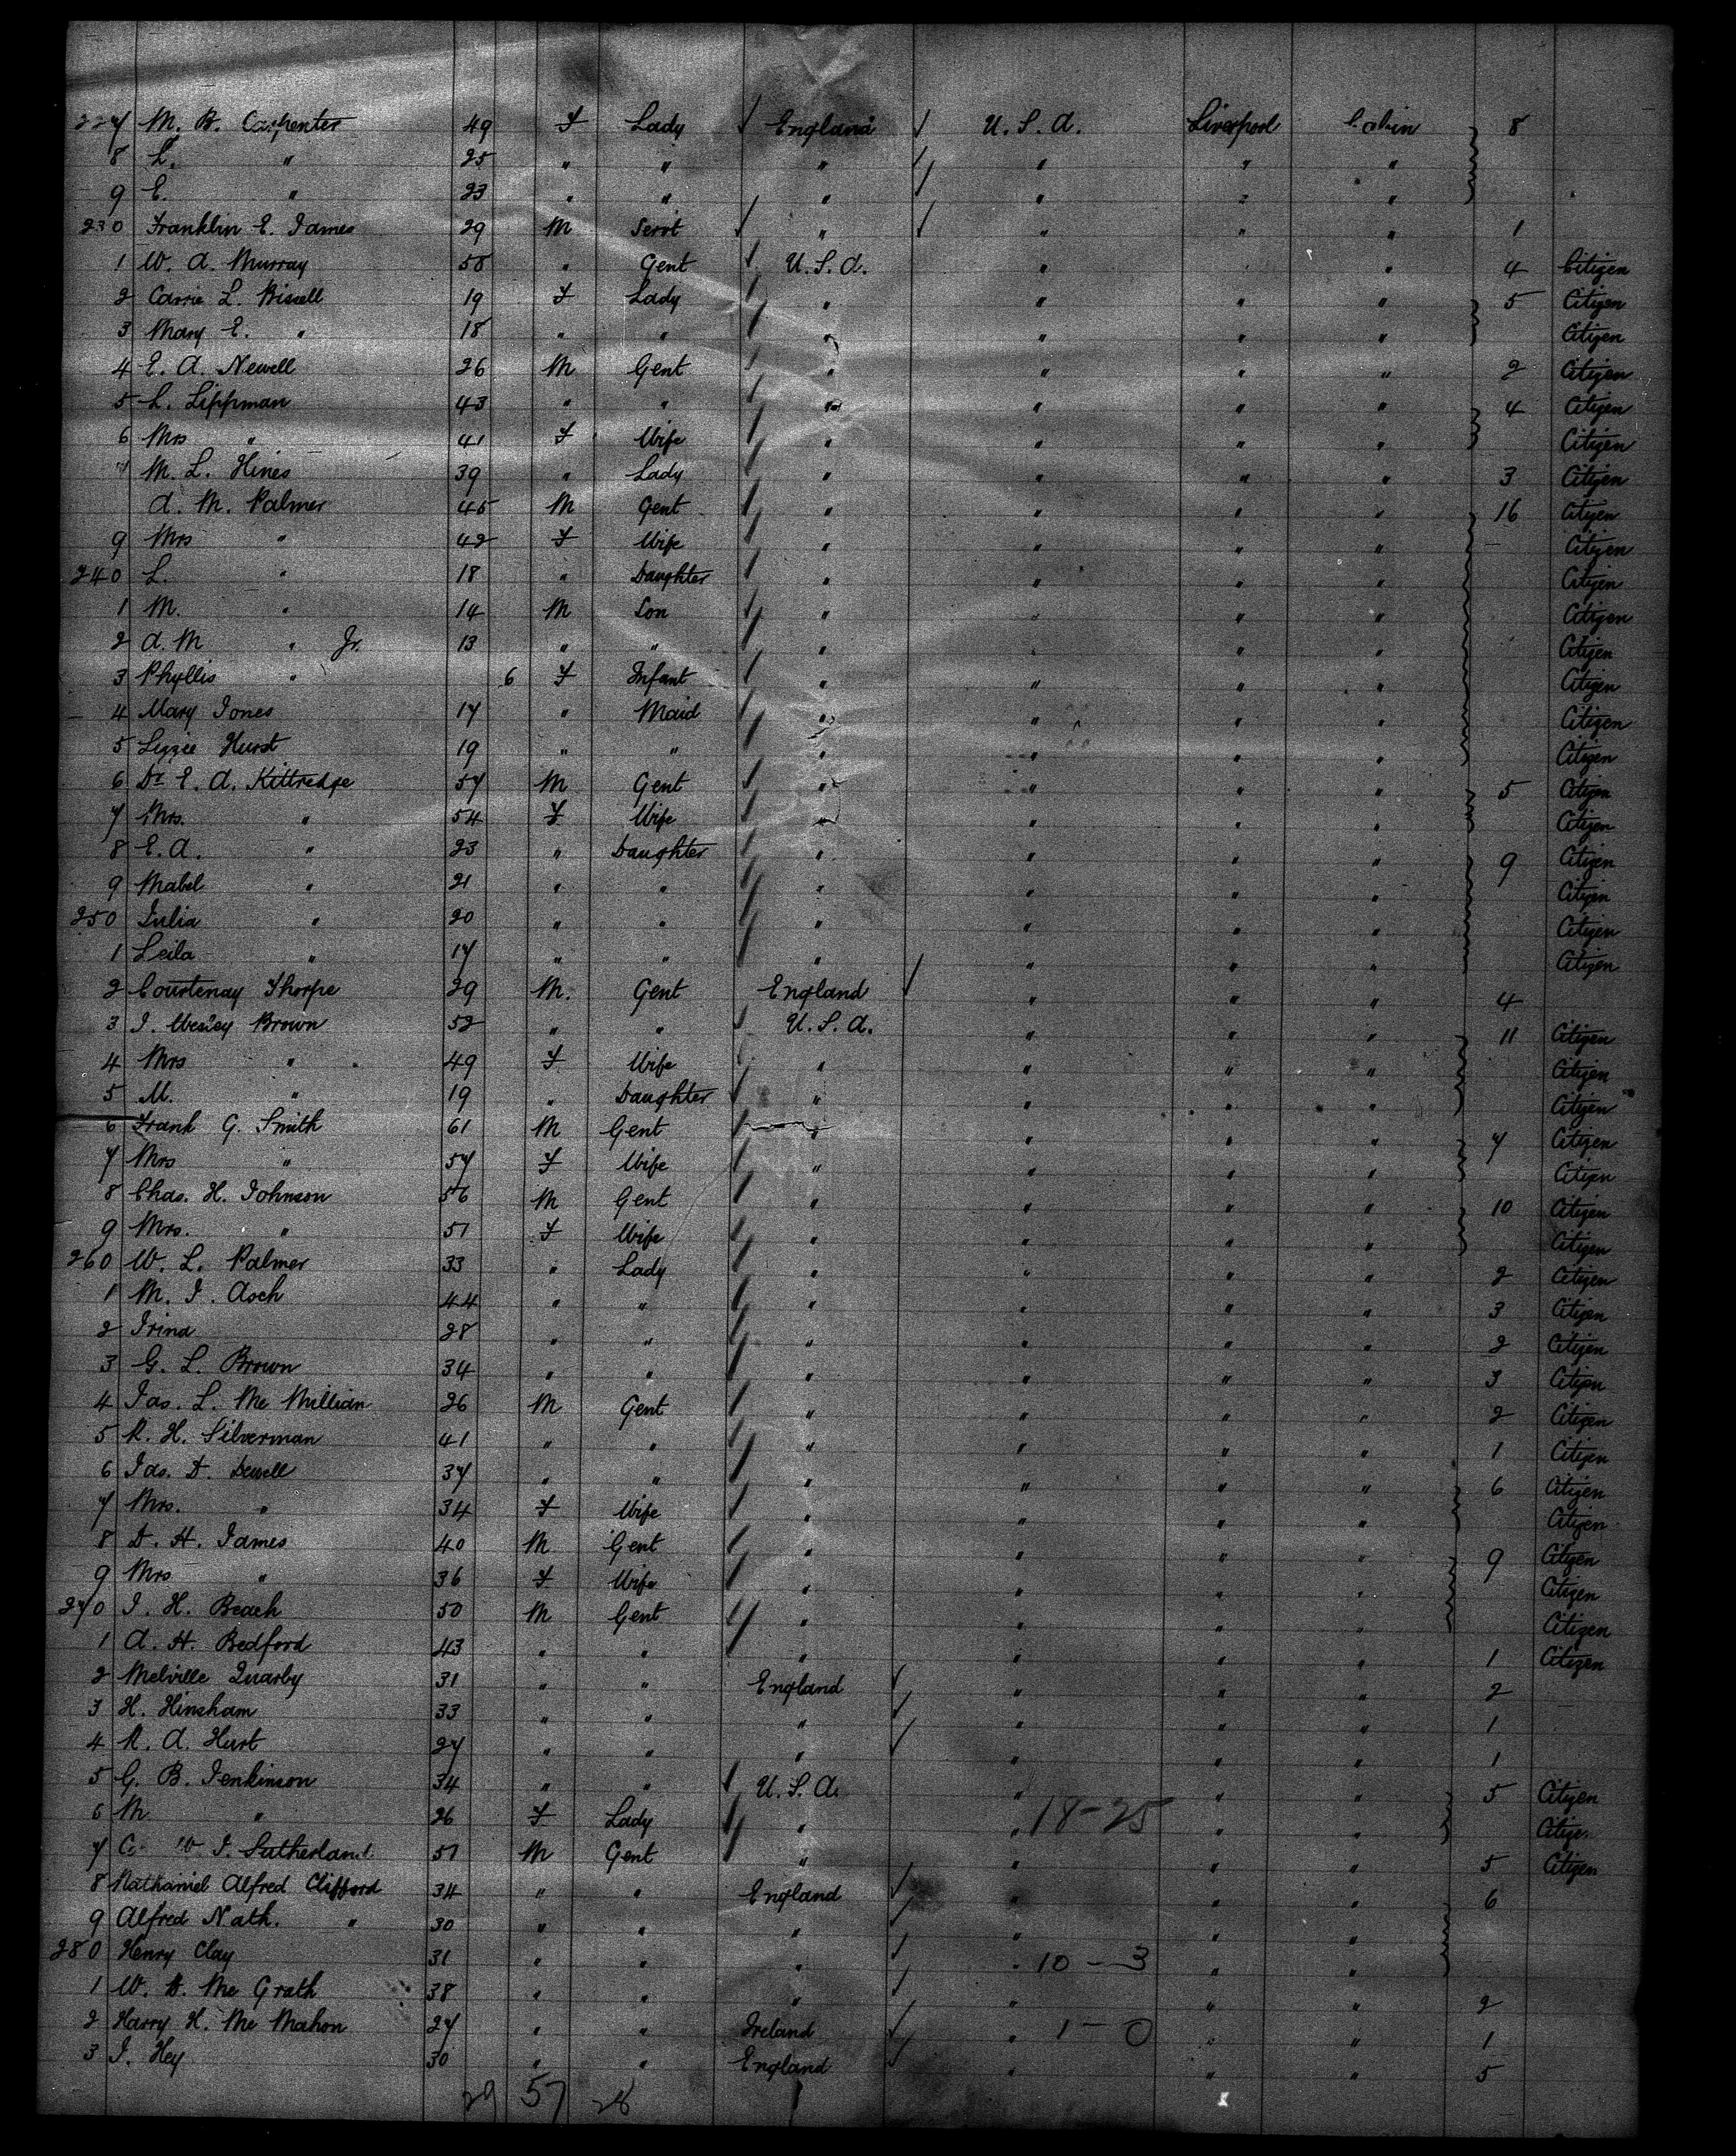 227 M. B. Carpenter 49 F Lady England U.S.A. Liverpool Cabin 8
8 L. " 25 " " " " " "
9 E. " 23 " " " " " "
230 Franklin E. James 29 M Servt " " " " 1
1 W. A. Murray 58 " Gent U.S.A. " " 4 Citizen
2 Carrie L. Bissell 19 F Lady " " " " 5 Citizen
3 Mary E. " 18 " " " " " " Citizen
4 E. A. Newell 26 M Gent " " " " 2 Citizen
5 L. Lippman 43 " " " " " " 4 Citizen
6 Mrs " 41 F Wife " " " " Citizen
7 M. L. Hines 39 " Lady " " " " 3 Citizen
A. M. Palmer 45 M Gent " " " " 16 Citizen
9 Mrs " 42 F Wife " " " " Citizen
240 L. " 18 " Daughter " " " " Citizen
1 M. " 14 M Son " " " " Citizen
2 A. M " Jr. 13 " " " " " " Citizen
3 Phyllis " 6 F Infant " " " " Citizen
4 Mary Jones 17 " Maid " " " " Citizen
5 Lizzie Hurst 19 " " " " " " Citizen
6 Dr E. A. Kittredge 57 M Gent " " " " 5 Citizen
7 Mrs. " 54 F Wife " " " " Citizen
8 E. A. " 23 " Daughter " " " " 9 Citizen
9 Mabel " 21 " " " " " " Citizen
250 Julia " 20 " " " " " " Citizen
1 Leila " 17 " " " " " " Citizen
2 Courtenay Thorpe 29 M. Gent England " " " 4
3 J. Wesley Brown 52 " " U.S.A. " " " 11 Citizen
4 Mrs " 49 F Wife " " " " Citizen
5 M. " 19 " Daughter " " " " Citizen
6 Frank G. Smith 61 M Gent " " " " 7 Citizen
7 Mrs " 57 F Wife " " " " Citizen
8 Chas. H. Johnson 56 M Gent " " " " 10 Citizen
9 Mrs. " 51 F Wife " " " " Citizen
260 W. L. Palmer 33 " Lady " " " " 2 Citizen
1 M. J. Asch 44 " " " " " " 3 Citizen
2 Irina 28 " " " " " " 2 Citizen
3 G. L. Brown 34 " " " " " " 3 Citizen
4 Jas. L. Mc Millian 26 M Gent " " " " 2 Citizen
5 R. H. Silverman 41 " " " " " " 1 Citizen
6 Jas. D. Dewell 37 " " " " " " 6 Citizen
7 Mrs. " 34 F Wife " " " " Citizen
8 D. H. James 40 M Gent " " " " 9 Citizen
9 Mrs " 36 F Wife " " " " Citizen
270 J. H. Beach 50 M Gent " " " " Citizen
1 A. H. Bedford 43 " " " " " " 1 Citizen
2 Melville Quarby 31 " " England " " " 2
3 H. Hinsham 33 " " " " " " 1
4 R. A. Hurt 27 " " " " " " 1
5 G. B. Jenkinson 34 " " U.S.A. " " " 5 Citizen
6 M " 26 F Lady " " 18-25 " " Citizen
7 W J. Sutherland 51 M Gent " " " " 5 Citizen
8 Nathaniel Alfred Clifford 34 " " England " " " 6
9 Alfred Nath. " 30 " " " " " "
280 Henry Clay 31 " " " " 10-3 " "
1 W. D. Mc Grath 38 " " " " " " 2
2 Harry H. Mc Mahon 27 " " Ireland " 1-0 " " 1
3 J. Hey 30 " " England " " " 5
29 57 28